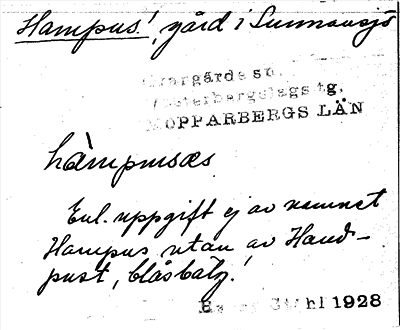 Hampus!, gård i Sunnansjö
Norrbärke sn.
Västerbergslags tg.
KOPPARBERGS LÄN
hàmpusæs
Enl. uppgift ej av namnet
Hampus utan av Hand-
pust, blåsbälg!
Harry Ståhl 1928